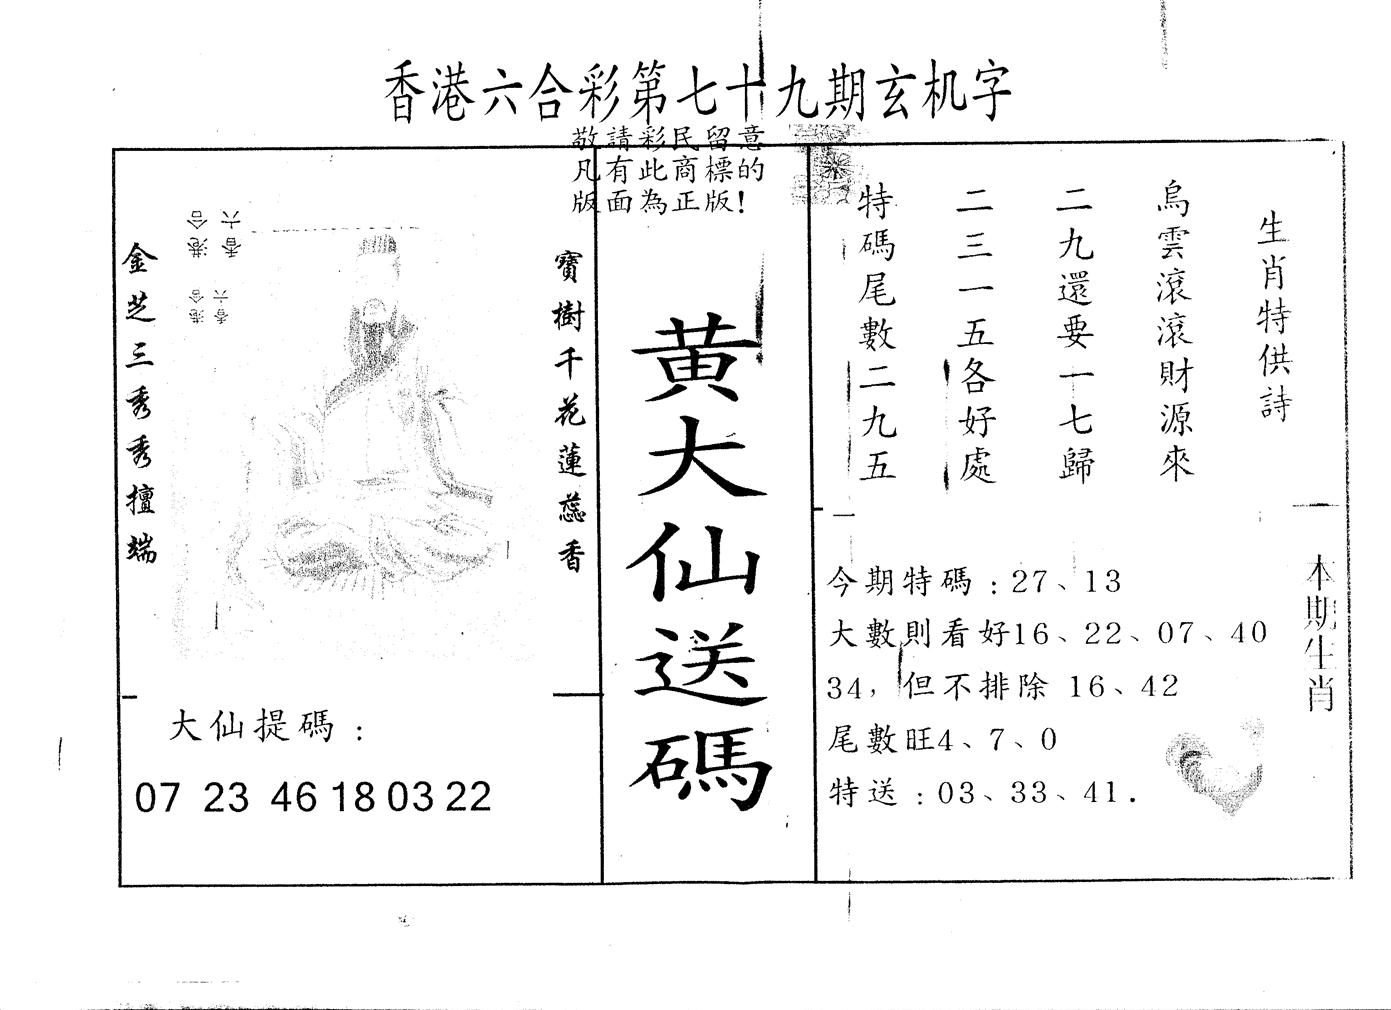 香港六合彩第七十九期玄机字
敬請彩民留意
凡有此商標的
版面為正版!
生肖特供詩
烏雲滾滾財源來
二九還要一七歸
二三一五各好處
特碼尾數二九五
黄大仙送碼
寶樹千花蓮蕊香
金芝三秀秀擅端
香港六合
香港六合
大仙提碼:
07 23 46 18 03 22
今期特碼:27、13
大數則看好16、22、07、40
34,但不排除 16、42
尾數旺4、7、0
特送:03、33、41.
本期生肖